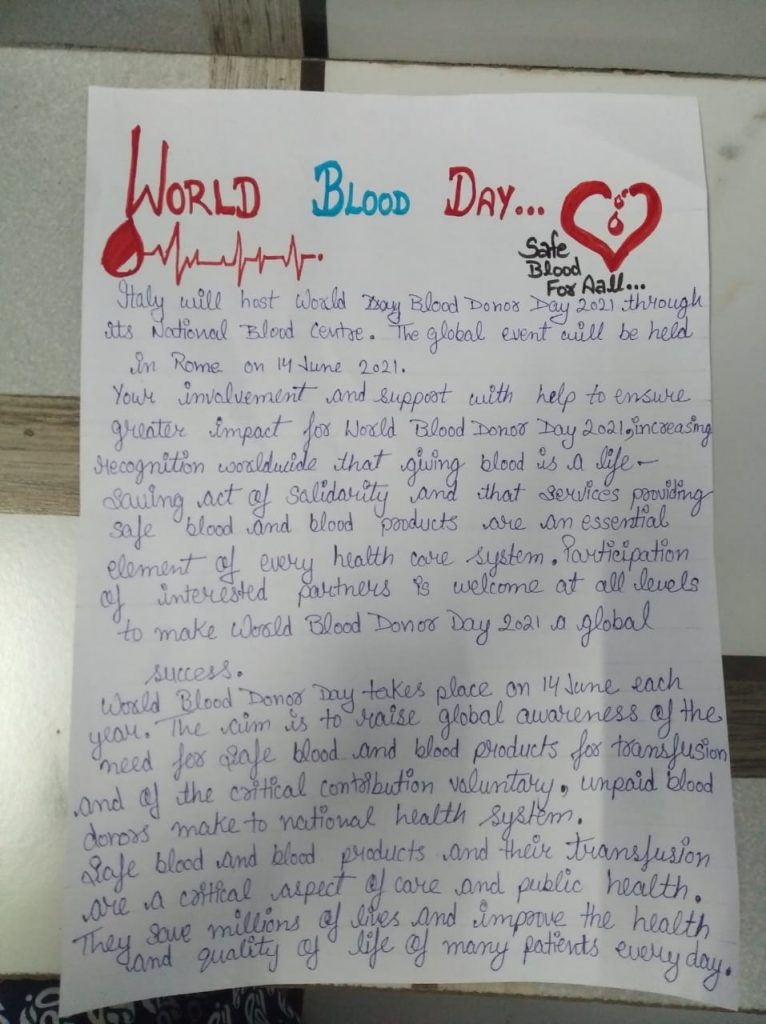 WORLD BLOOD DAY...
Safe
Blood
For Aall...
Italy will host World Day Blood Donor Day 2021 through
its National Blood Centre. The global event will be held
in Rome on 14 June 2021.
Your involvement and support with help to ensure
greater impact for World Blood Donor Day 2021, increasing
recognition worldwide that giving blood is a life-
saving act of salidarity and that services providing
safe blood and blood products are an essential
element of every health care system. Participation
of interested partners is welcome at all levels
to make World Blood Donor Day 2021 a global
success.
World Blood Donor Day takes place on 14 June each
year. The aim is to raise global awareness of the
need for safe blood and blood products for transfusion
and of the critical contribution voluntary, unpaid blood
donors make to national health system.
Safe blood and blood products and their transfusion
are a critical aspect of care and public health.
They save millions of lives and improve the health
and quality of life of many patients every day.